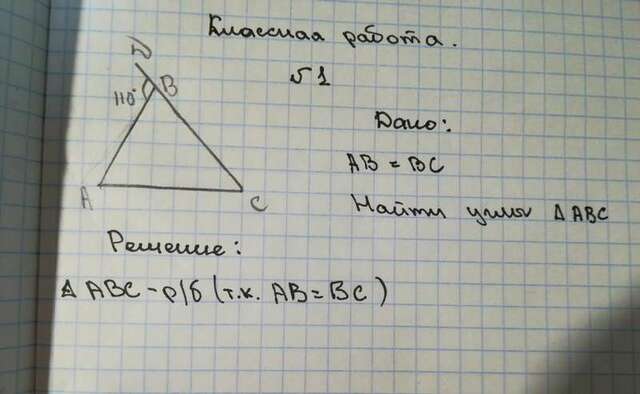 Классная работа.
№1
D
B
110°
A
C
Дано:
AB = BC
Найти углы Δ ABC
Решение:
Δ ABC – р/б (т.к. AB = BC)